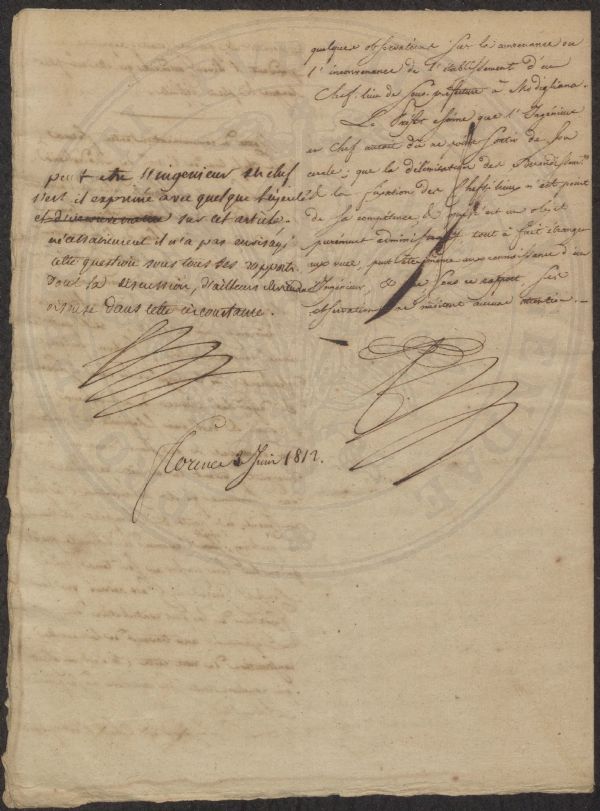 quelques observations sur la convenance ou
l'inconvenance de l'établissement d'un
Chef-lieu de Sous-préfecture à Modigliana.
Le Préfet estime que l'Ingénieur
en Chef aurait dû ne point sortir de son
cercle; que la délimitation des Arrondissem.ts
& la fixation des Chefs-lieux n'est point
de sa compétence, & est un objet
purement administratif tout à fait étranger
aux vues, peut-être même aux connaissances d'un
Ingénieur, & que sous ce rapport, ses
observations ne méritent aucune attention.
peut etre l'ingenieur en chef
s'est il exprimé avec quelque légereté
et sur cet article.
nécessairement il n'a pas envisagé
cette question sous tous ses rapports
dont la discussion, d'ailleurs
dans cette circonstance.
Florence 3 Juin 1812.